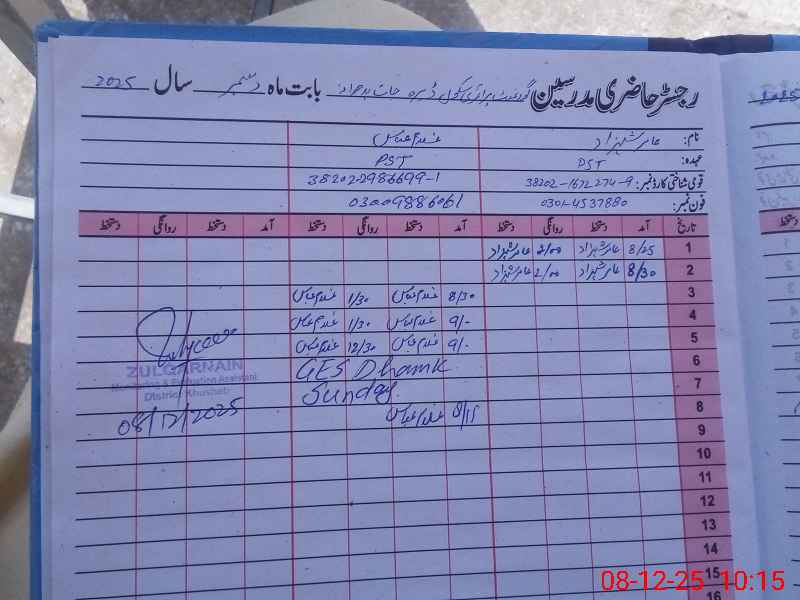 رجسٹر حاضری مدرسین گورنمنٹ پرائمری سکول ڈیرہ جات بابت ماہ دسمبر سال 2025
نام: عامر شہزاد غلام عباس
عہدہ: PST PST
قومی شناختی کارڈ نمبر: 38202-1672274-9 38202-2986699-1
فون نمبر: 0301-4537880 03009886061
تاریخ آمد دستخط روانگی دستخط آمد دستخط روانگی دستخط آمد دستخط روانگی دستخط
1 8/25 عامر شہزاد 2/00 عامر شہزاد
2 8/30 عامر شہزاد 2/00 عامر شہزاد
3 8/30 غلام عباس 1/30 غلام عباس
4 9/- غلام عباس 1/30 غلام عباس
5 9/- غلام عباس 12/30 غلام عباس
6 GES Dhamk
7 Sunday
8 8/15 غلام عباس
9
10
11
12
13
14
15
16
ZULQARNAIN
Monitoring & Evaluation Assistant
District Khushab
08/12/2025
دستخط
08-12-25 10:15